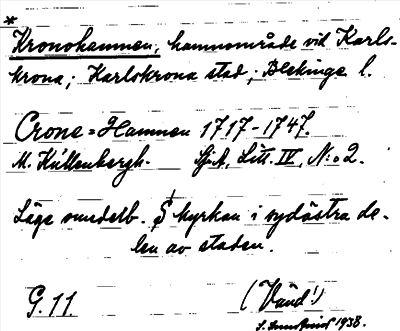 *
Kronohamnen, hamnområde vid Karls-
krona; Karlskrona stad; Blekinge l.
Crone=Hamnen 1717-1747.
M. Küllenbergh. Sj.A., Litt. IV, N:o 2.
Läge sunderb. kyrkan i sydöstra de-
len av staden.
G. 11. (Vänd!)
1938.